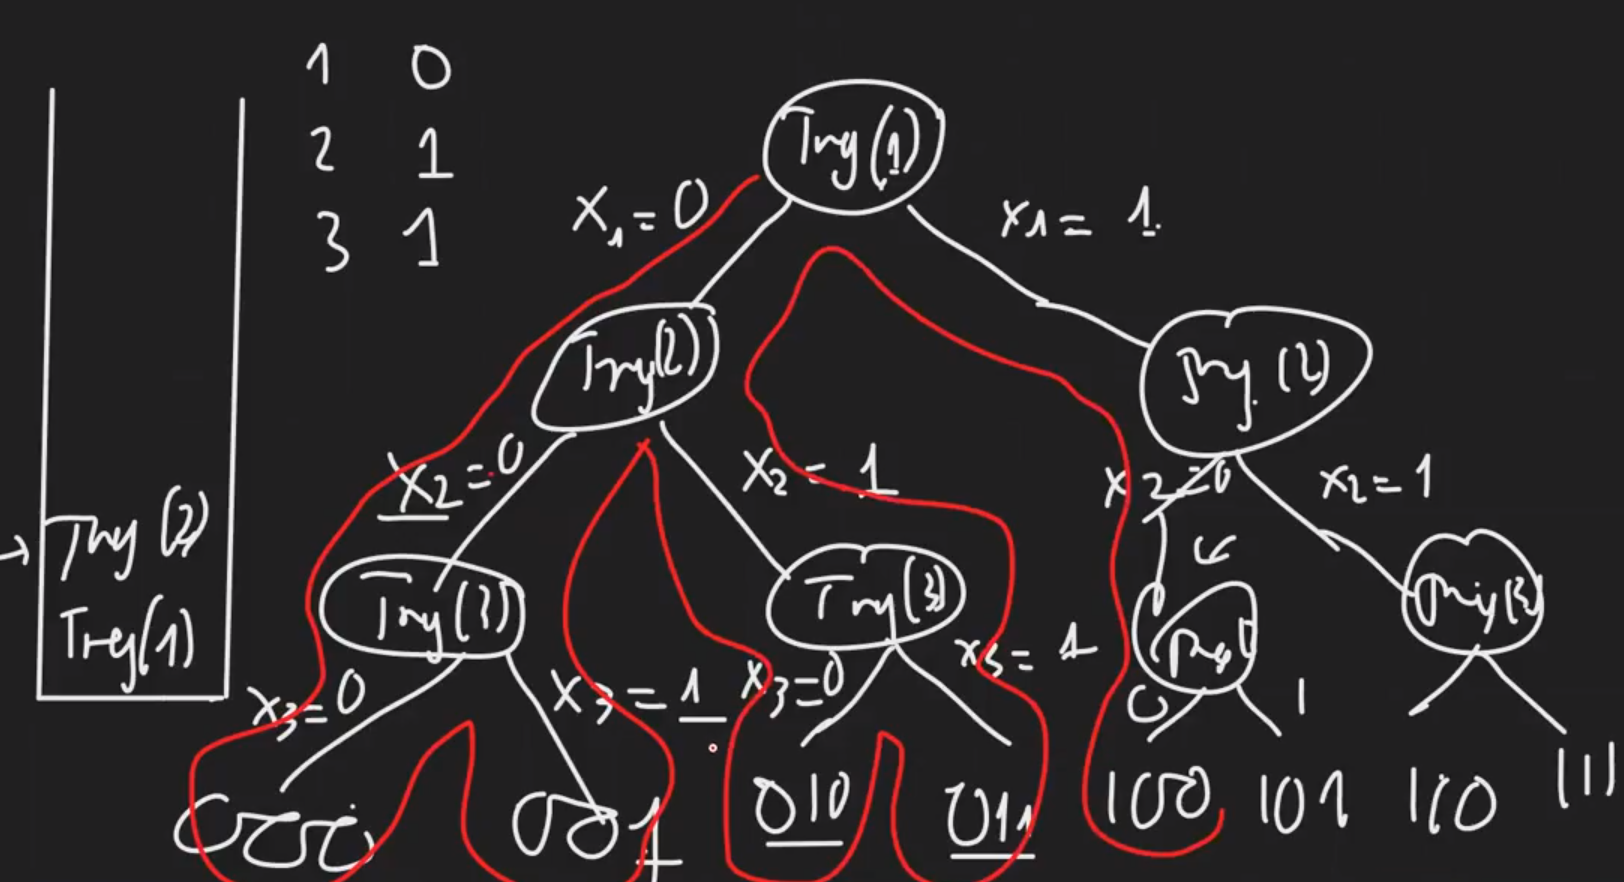 1 0
2 1
3 1
Try(1)
x₁=0
x₁= 1
Try(2)
Try(2)
x₂=0
x₂= 1
x₂=0
x₂=1
Try(2)
Try(1)
Try(3)
Try(3)
Try(3)
x₃=0
x₃=1
x₃=0
x₃=1
0
1
000
001
010
011
100
101
110
111